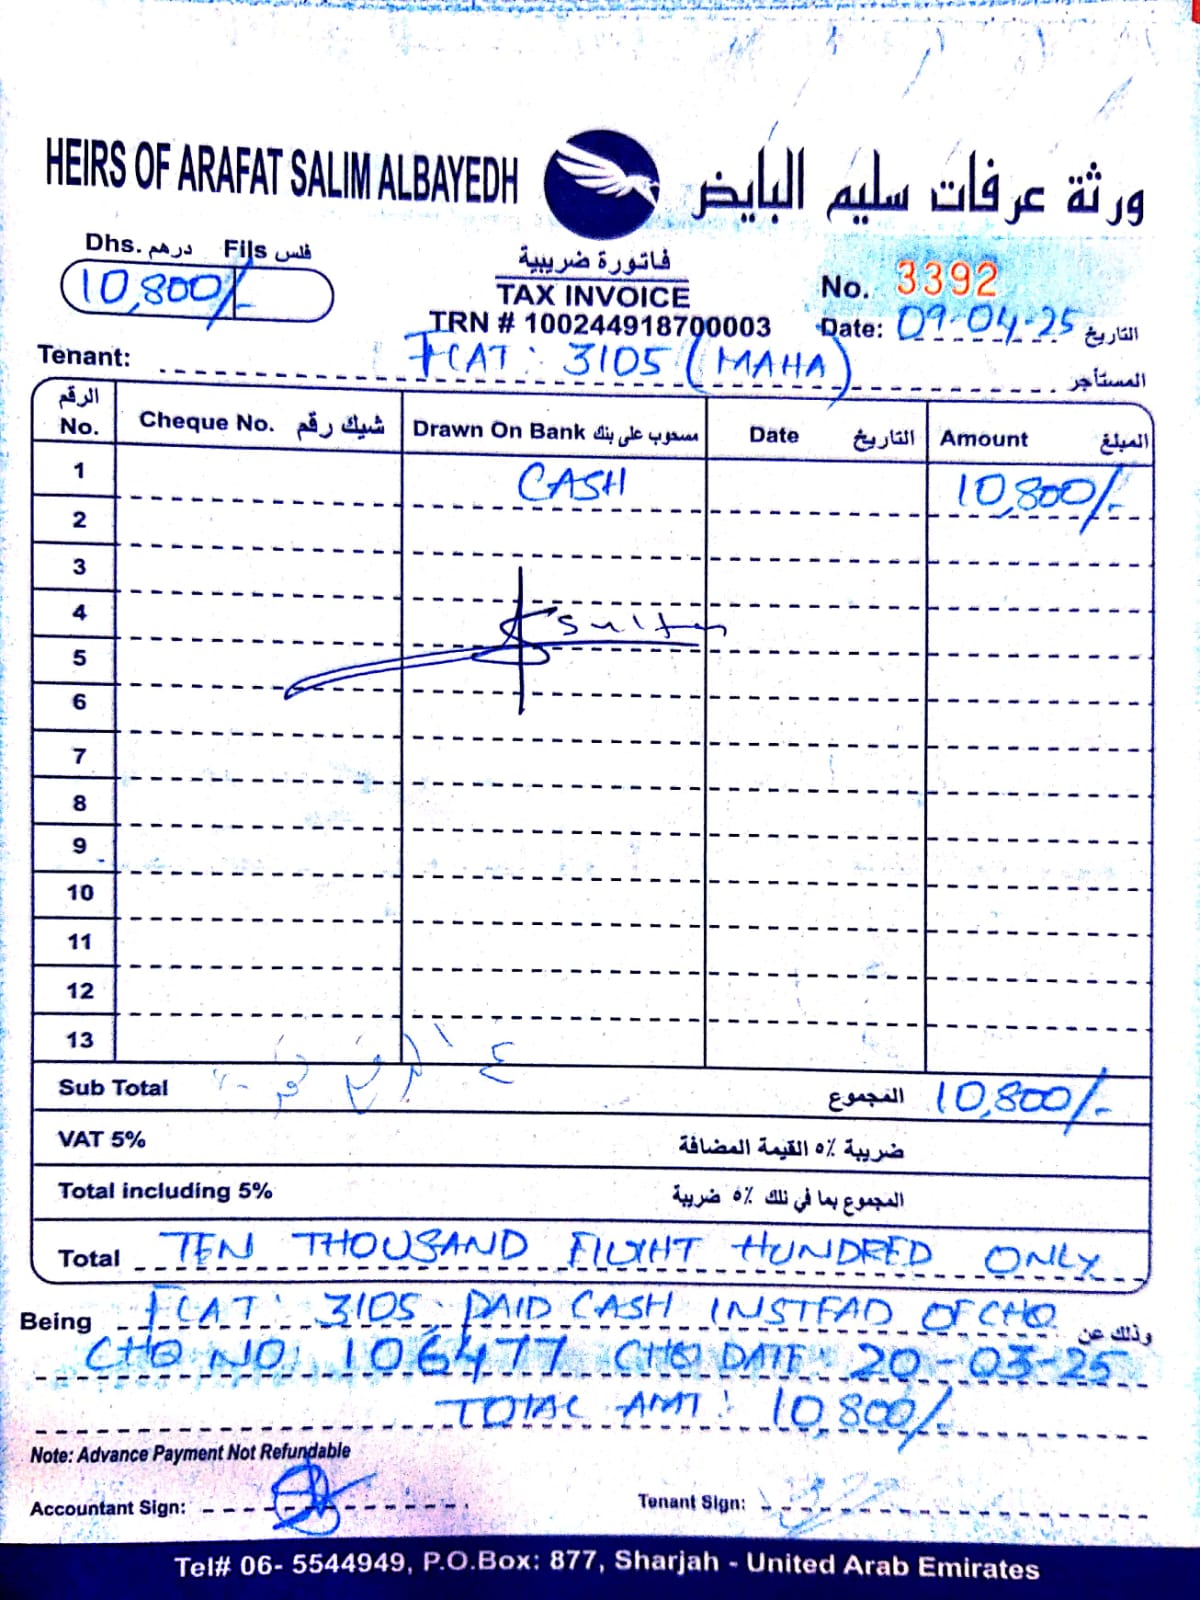 HEIRS OF ARAFAT SALIM ALBAYEDH
ورثة عرفات سليم البايض
Dhs. درهم Fils فلس
10,800/-
فاتورة ضريبية
TAX INVOICE
TRN # 100244918700003
No. 3392
Date: 09-04-25 التاريخ
Tenant: FLAT: 3105 (MAHA) المستأجر
الرقم No. Cheque No. شيك رقم Drawn On Bank مسحوب على بنك Date التاريخ Amount المبلغ
1 CASH 10,800/-
2
3
4 Sultan
5
6
7
8
9
10
11
12
13
Sub Total المجموع 10,800/-
VAT 5% ضريبة ٥٪ القيمة المضافة
Total including 5% المجموع بما في تلك ٥٪ ضريبة
Total TEN THOUSAND EIGHT HUNDRED ONLY
Being FLAT: 3105, PAID CASH INSTEAD OF CHQ وذلك عن
CHQ NO: 106477 CHQ DATE: 20-03-25
TOTAL AMT: 10,800/-
Note: Advance Payment Not Refundable
Accountant Sign:
Tenant Sign:
Tel# 06- 5544949, P.O.Box: 877, Sharjah - United Arab Emirates